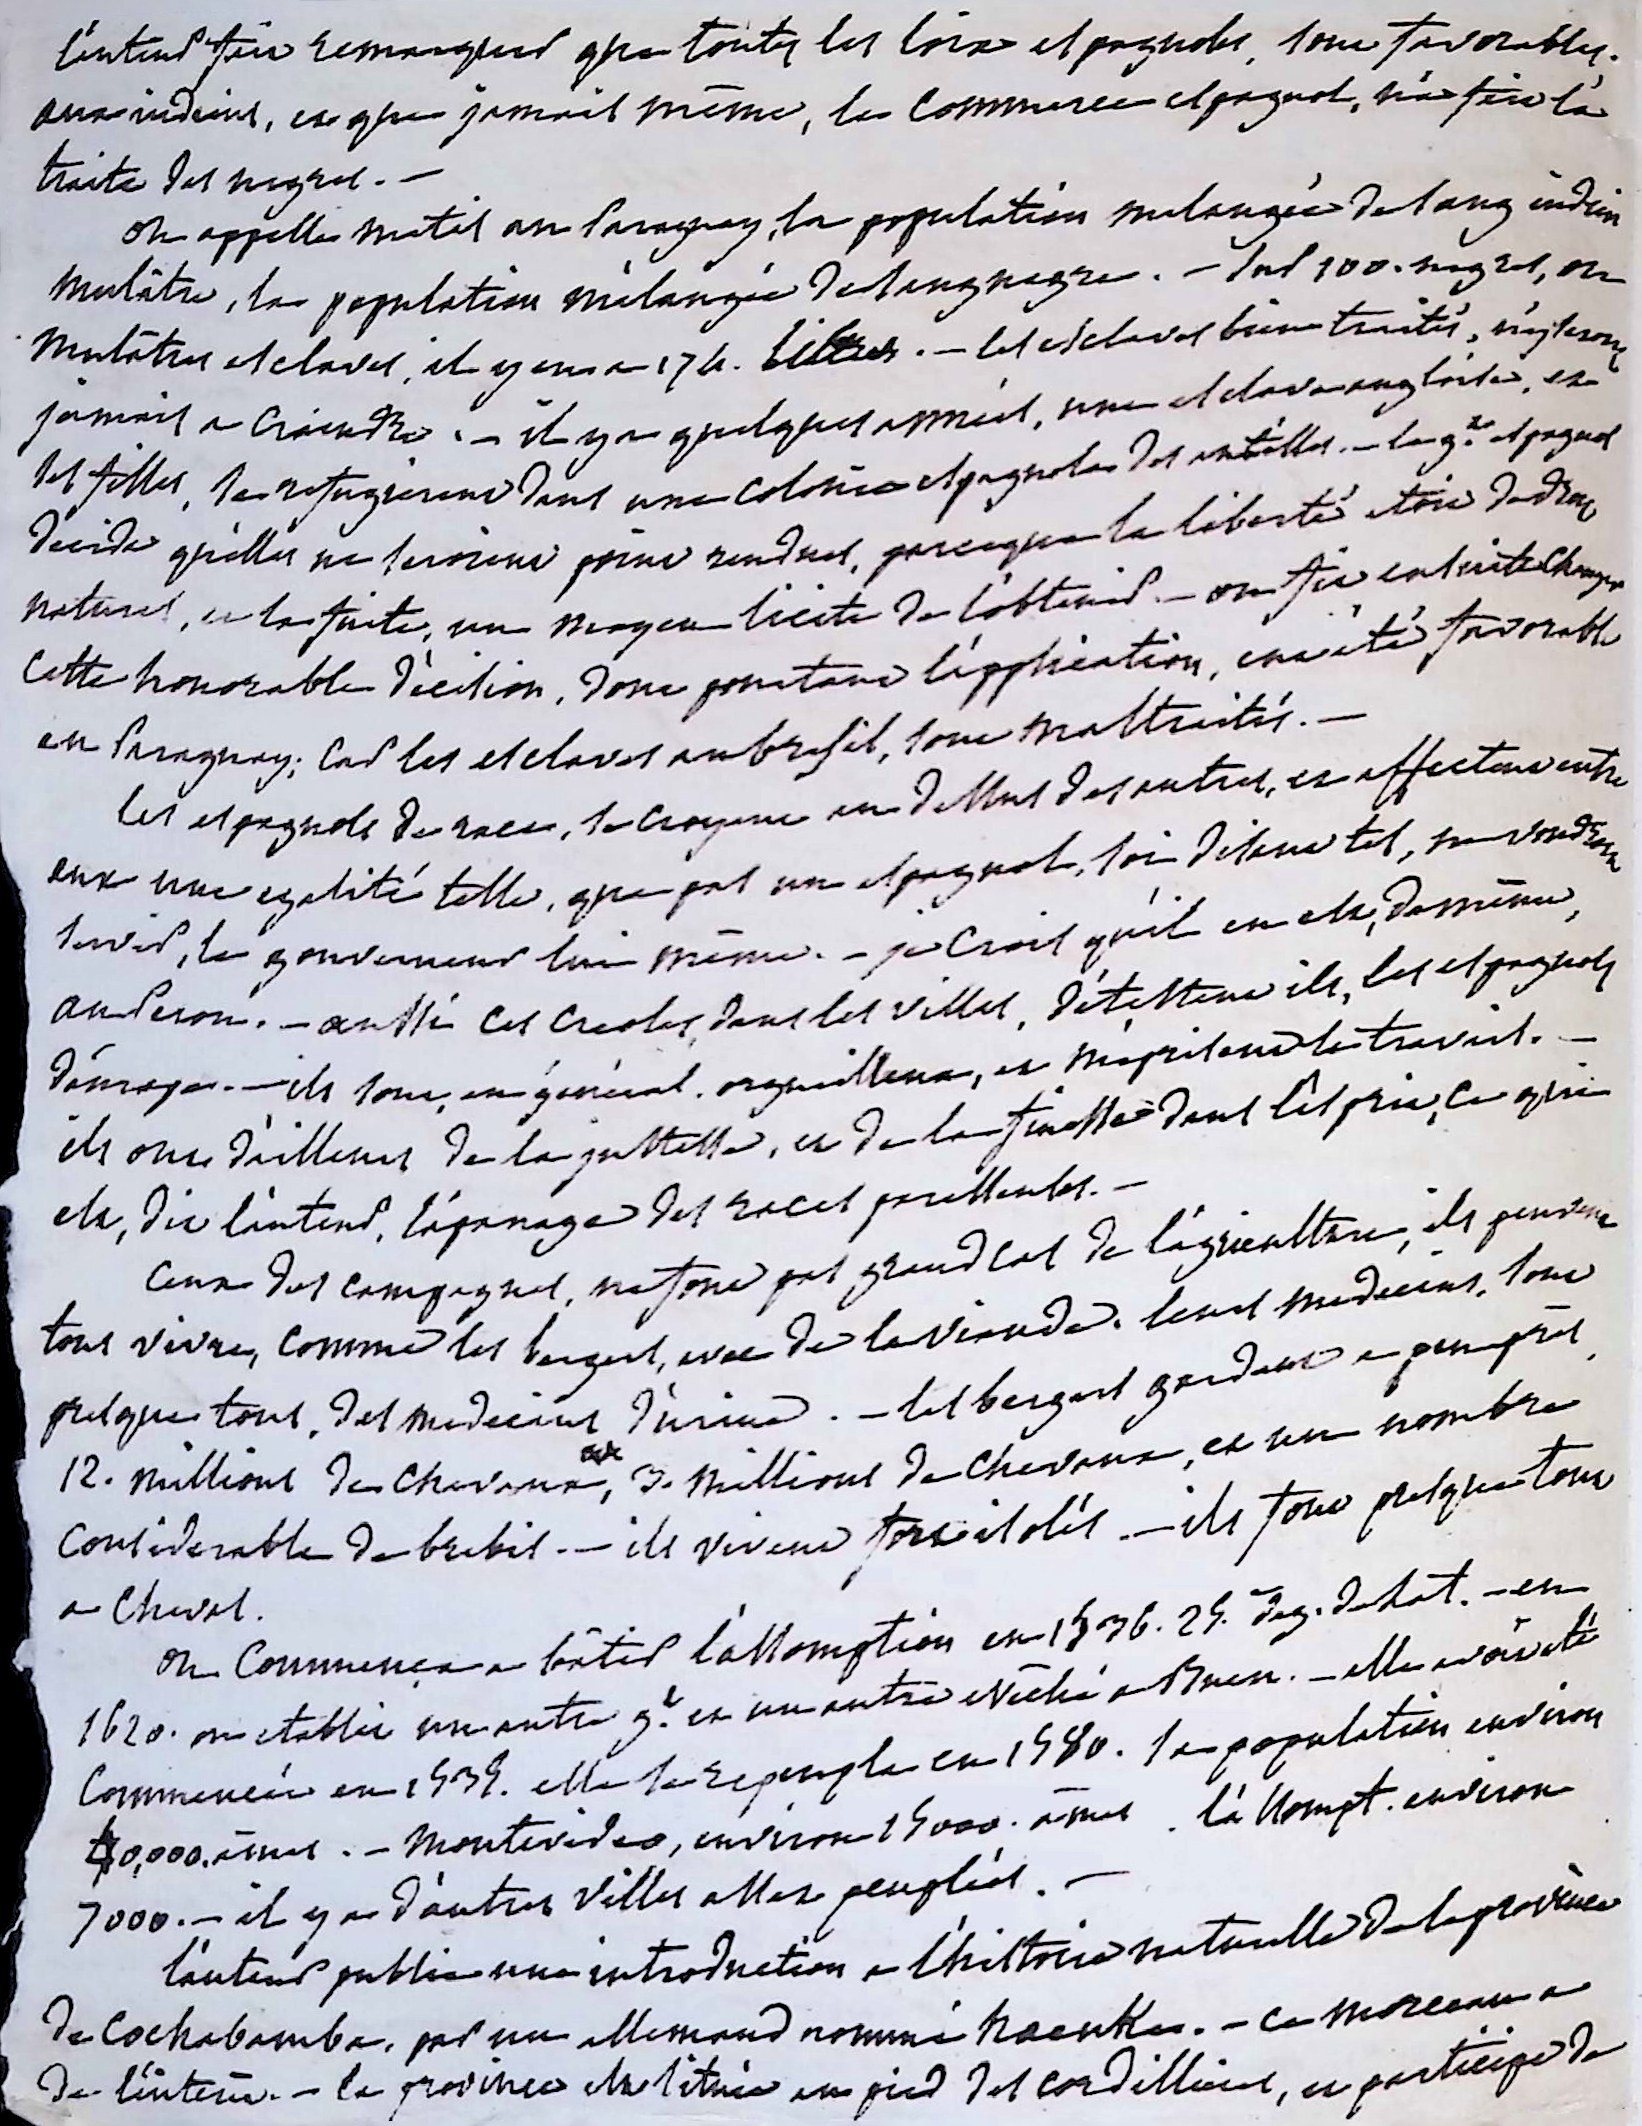 l'auteur fait remarquer que toutes les loix espagnoles, sont favorables
aux indiens, et que jamais même, le commerce espagnol, n'a fait la
traite des negres. —
on appelle metis au Paraguay, la population melangée de sang indien
mulâtre, la population mélangée de sang negre. — sur 100. negres, ou
mulâtres esclaves, il y en a 174. libres. — les esclaves bien traités, n'y seront
jamais a craindre. — il y a quelques années, une esclave angloise, et
ses filles, se refugierent dans une colonie espagnole des antilles. — le g.r espagnol
decida qu'elles ne seroient point rendues, parceque la liberté etoit de droit
naturel, et la fuite, un moyen licite de l'obtenir. — on fit ensuite changer
cette honorable décision, dont pourtant l'application, eut été favorable
au Paraguay; car les esclaves au bresil, sont maltraités. —
les espagnols de race, se croyent au dessus des autres, et affectent entre
eux une egalité telle, que pas un espagnol, soi disant tel, ne voudroit
servir, le gouverneur lui même. — je crois qu'il en est, de même,
au Perou. — aussi ces creoles, dans les villes, détestent ils, les espagnols
d'europe. — ils sont, en général, orgueilleux, et méprisent le travail. —
ils ont d'ailleurs de la justesse, et de la finesse dans l'esprit, ce qui
est, dit l'auteur, l'apanage des races
ceux des campagnes, ne font pas grand cas de l'agriculture, ils peuvent
tous vivre, comme les bergers, avec de la viande. leurs medecins, sont
presque tous, des medecins d'urine. — les bergers gardent a peu près,
12. millions de chevaux, 3. millions de chevaux, et un nombre
considerable de brebis. — ils vivent fort isolés. — ils font presque tout
a cheval.
on commença a bâtir l'assomption en 1536. 25. deg. de lat. — en
1620. on etablit un autre g.t et un autre evêché a Buen. — elle avoit été
commencée en 1535. elle se repeupla en 1580. sa population environ
40,000. âmes. — Montevideo, environ 15000. âmes. l'assompt. environ
7000. — il y a d'autres villes assez peuplées. —
l'auteur publie une introduction a l'histoire naturelle de la province
de Cochabamba, par un allemand nommé haenke. — ce morceau a
de l'interêt. — la province est située au pied des cordillieres, et participe de